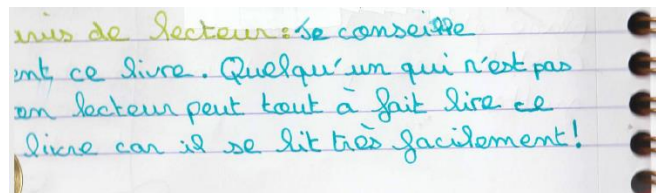 avis de lecteur : Je conseille
ent ce livre. Quelqu'un qui n'est pas
on lecteur peut tout à fait lire ce
livre car il se lit très facilement!